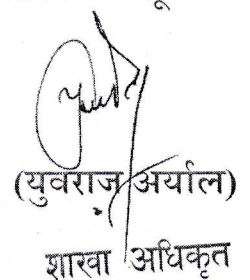 (युवराज अर्याल)
शाखा अधिकृत